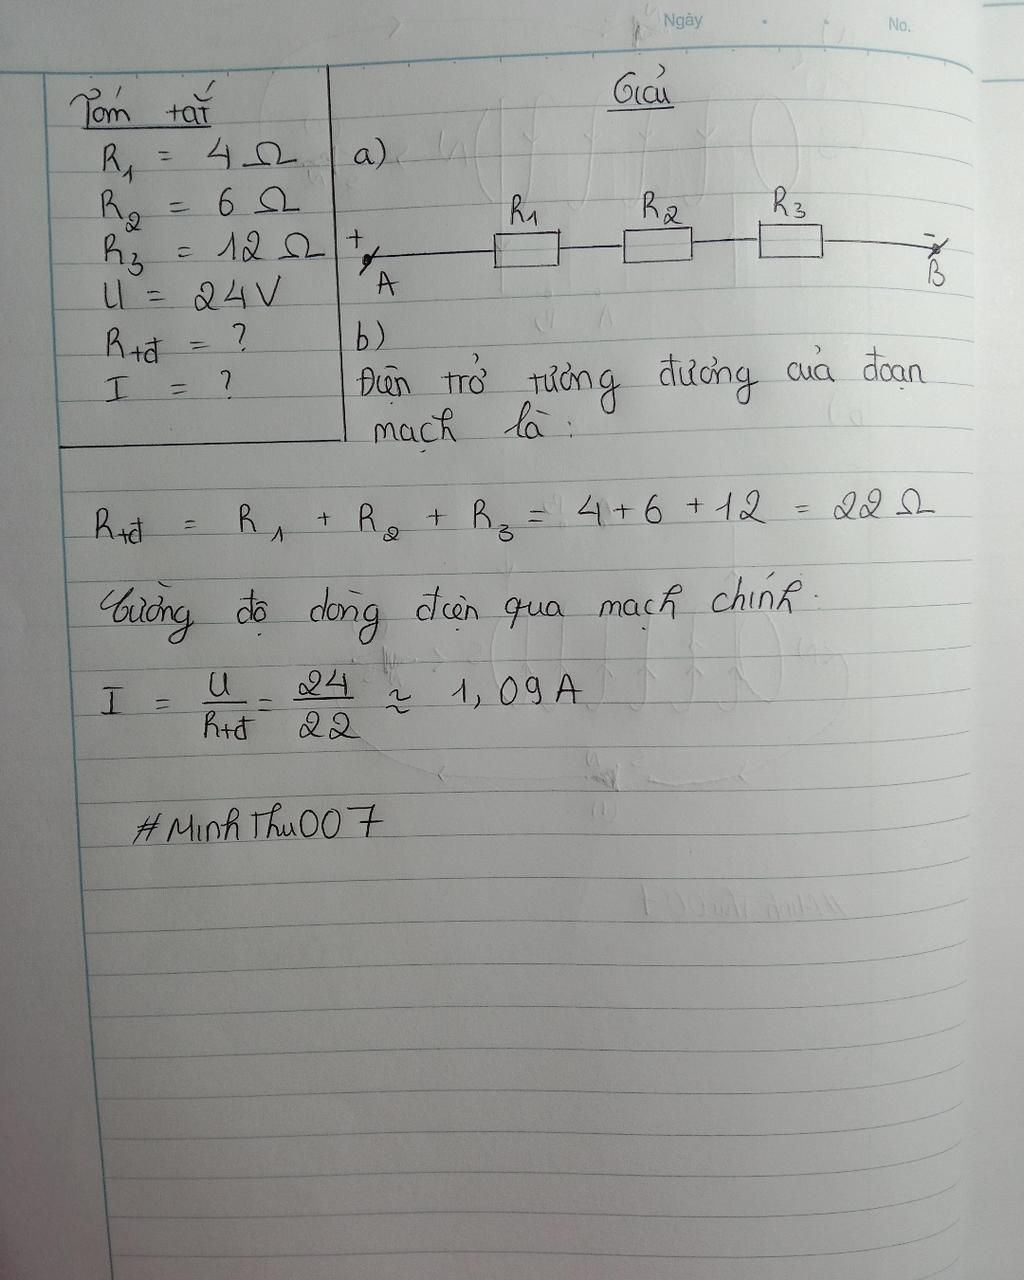 Ngày
No.
Tóm tắt
R1 = 4 Ω
R2 = 6 Ω
R3 = 12 Ω
U = 24V
Rtđ = ?
I = ?
Giải
a)
R1 R2 R3
+ -
A B
b)
Điện trở tương đương của đoạn
mạch là:
Rtđ = R1 + R2 + R3 = 4+6+12 = 22 Ω
Cường độ dòng điện qua mạch chính.
I = U/Rtđ = 24/22 ≈ 1,09A
#MinhThu007